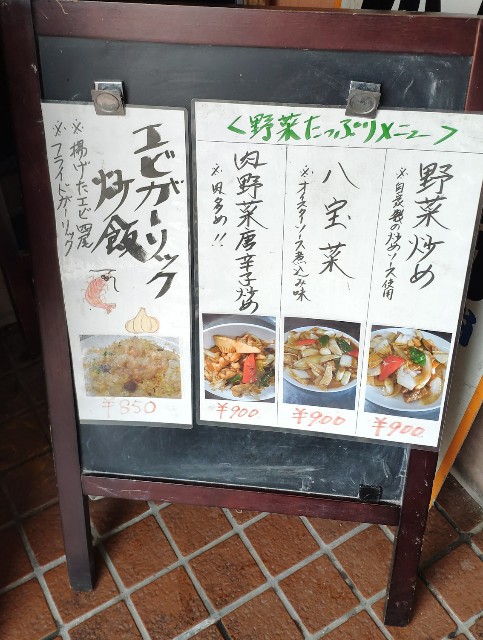 <野菜たっぷりメニュー>
野菜炒め
※自家製の炒めソース使用
¥900
八宝菜
※オイスターソース煮込み味
¥900
肉野菜唐辛子炒め
※肉多め!!
¥900
エビガーリック
炒飯
※揚げたエビ四尾
※フライドガーリック
¥850